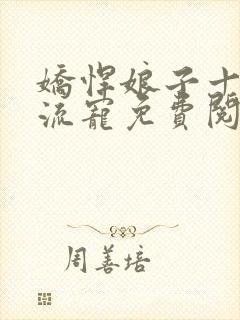 嬌悍娘子十
流寵免費閱
周善培